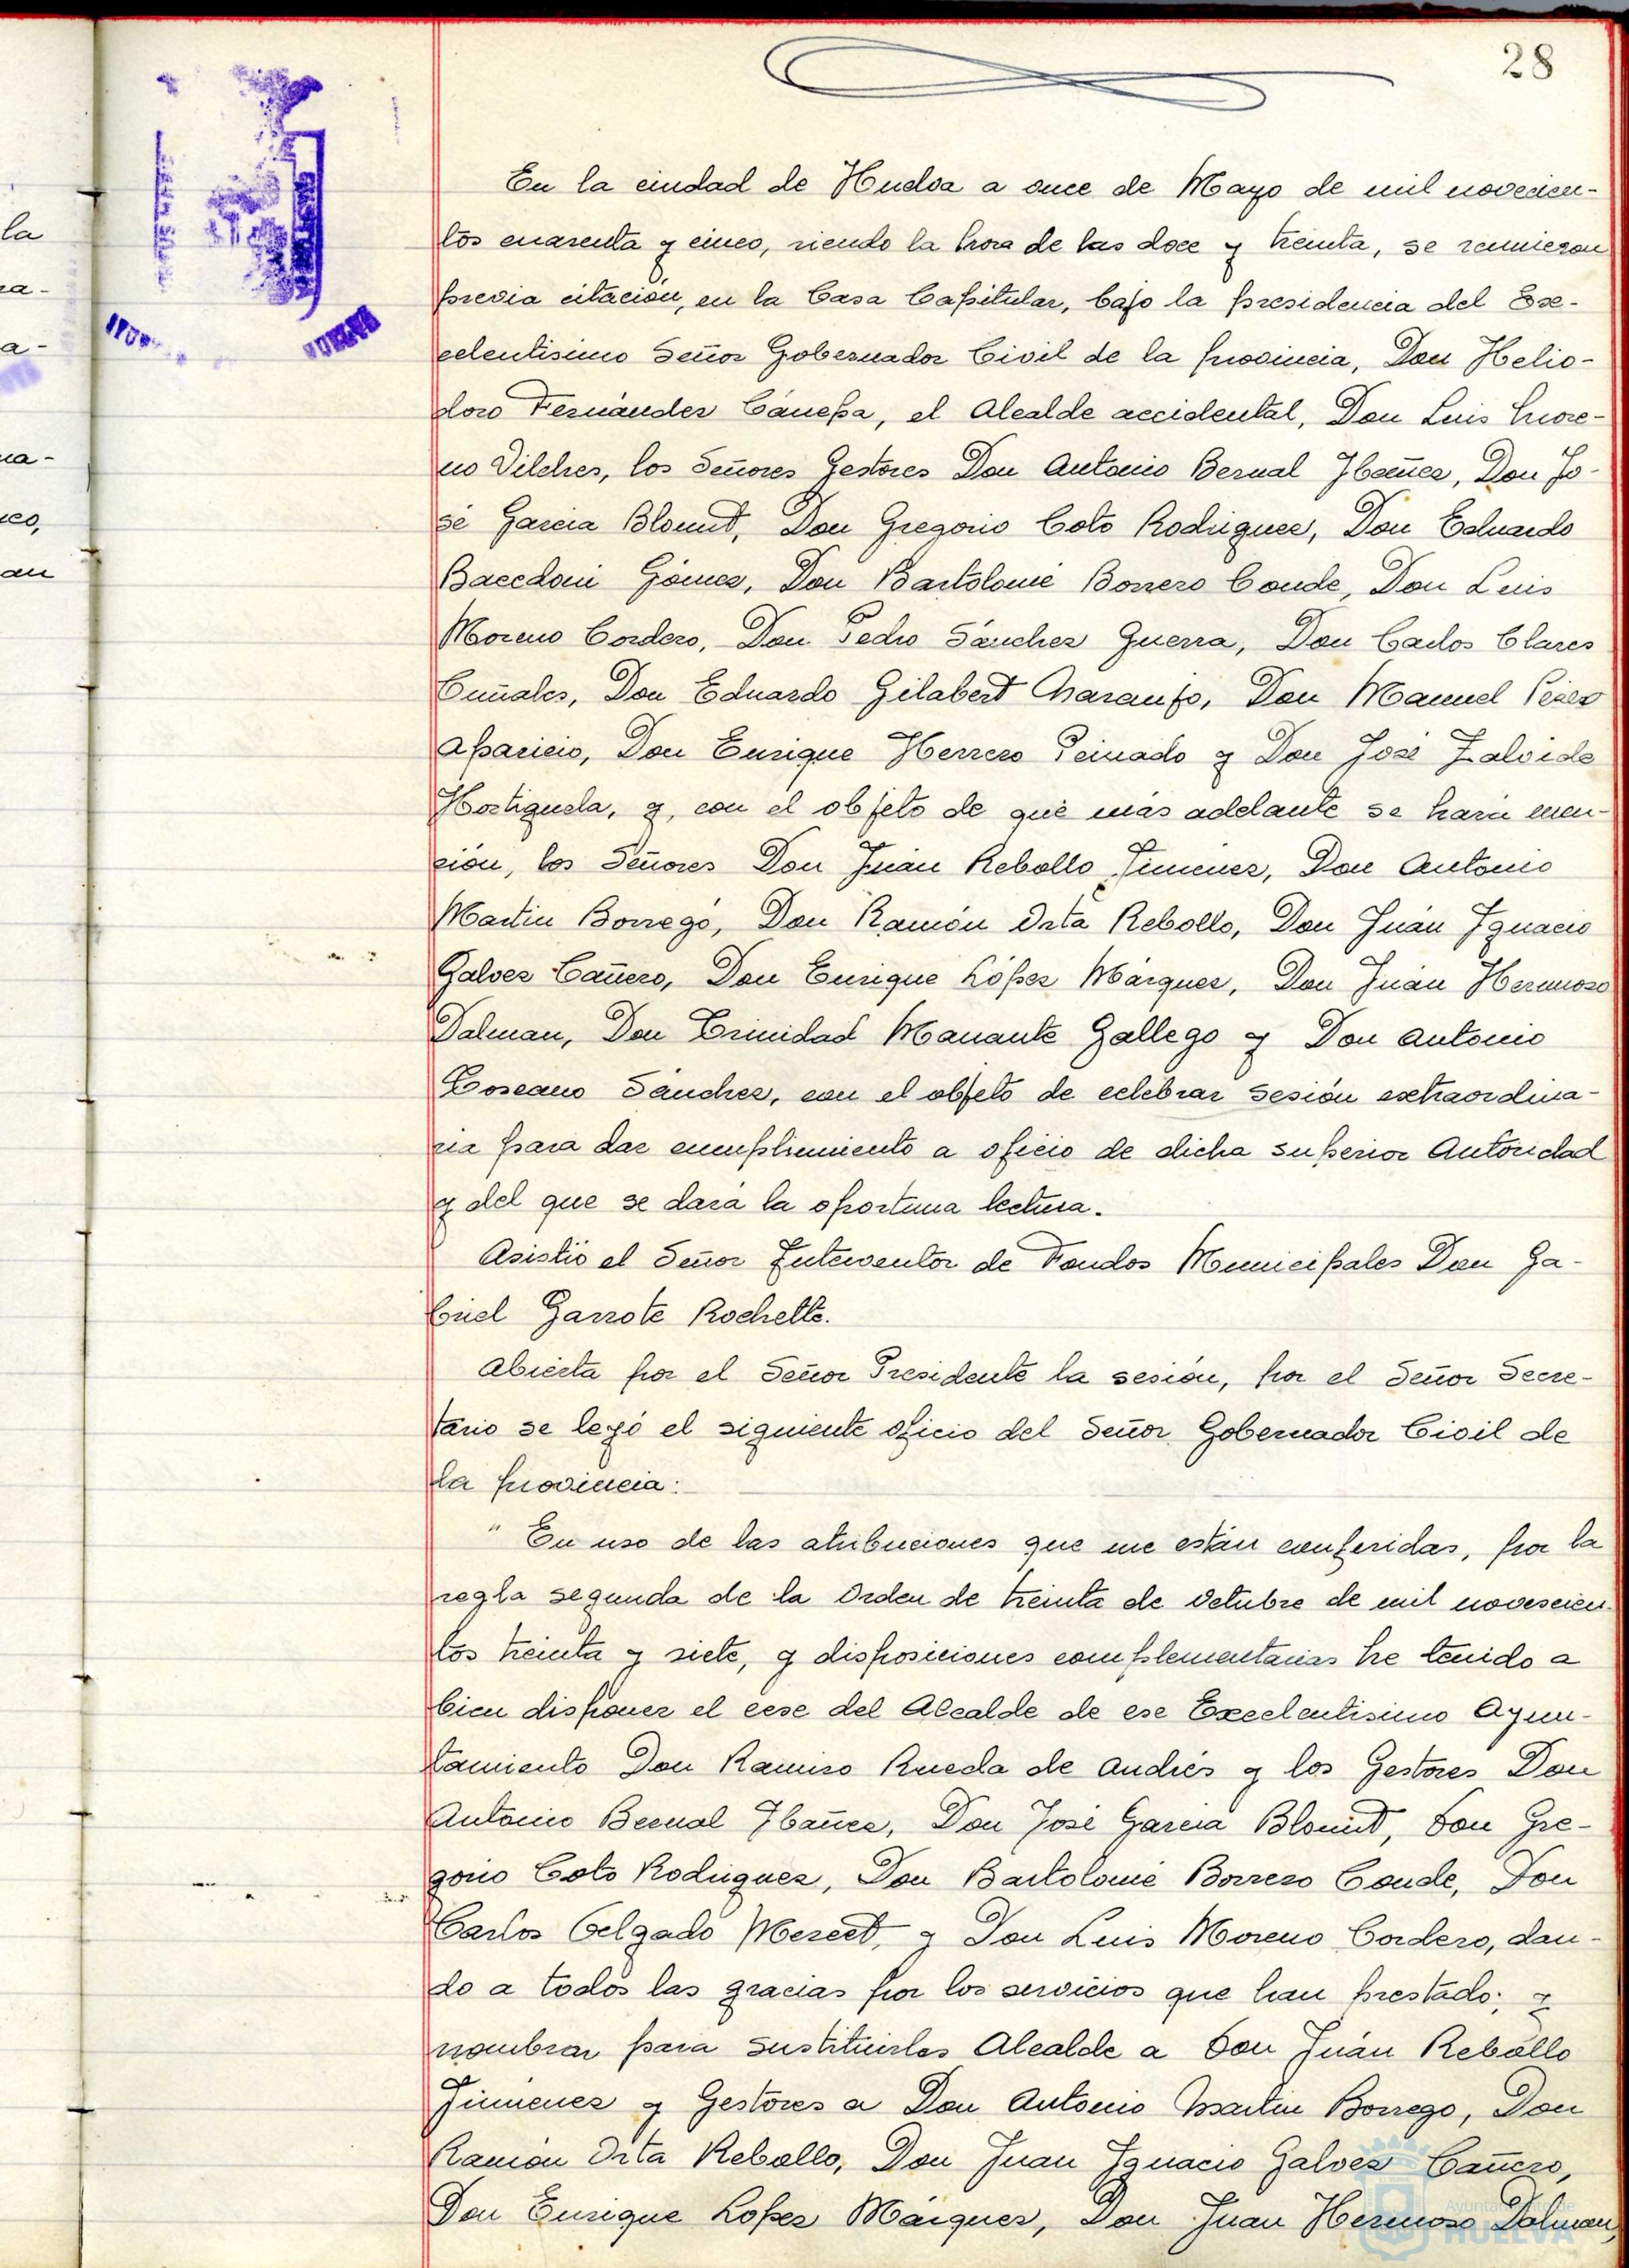 28
En la ciudad de Huelva a once de Mayo de mil novecien-
la
tos cuarenta y cinco, siendo la hora de las doce y treinta, se reunieron
ra-
previa citación, en la Casa Capitular, bajo la presidencia del Exc-
a-
celentisimo Señor Gobernador Civil de la provincia, Don Helio-
doro Fernández Cánepa, el Alcalde accidental, Don Luis More-
na-
no Vilches, los Señores Gestores Don Antonio Bernal Ibañez, Don Jo-
sé Garcia Blomit, Don Gregorio Coto Rodriguez, Don Eduardo
an
Baccdoni Gómez, Don Bartolomé Borrero Conde, Don Luis
Moreno Cordero, Don Pedro Sánchez Guerra, Don Carlos Clares
Cuñales, Don Eduardo Gilabert Naranjo, Don Manuel Pérez
Aparicio, Don Enrique Herrero Peinado y Don José Zalvide
Hortiguela, y, con el objeto de qué más adelante se hará men-
ción, los Señores Don Juán Rebollo Jimenez, Don Antonio
Martin Borrego, Don Ramón Orta Rebollo, Don Juán Ignacio
Galvez Cañero, Don Enrique López Márquez, Don Juán Hermoso
Dalman, Don Trinidad Manante Gallego y Don Antonio
Toscano Sánchez, con el objeto de celebrar sesión extraordina-
ria para dar cumplimiento a oficio de dicha superior Autoridad
y del que se dará la oportuna lectura.
Asistió el Señor Interventor de Fondos Municipales Don Ga-
briel Garrote Rochelte.
Abierta por el Señor Presidente la sesión, por el Señor Secre-
tario se leyó el siguiente oficio del Señor Gobernador Civil de
la provincia:
" En uso de las atribuciones que me están conferidas, por la
regla segunda de la Orden de treinta de Octubre de mil novescien-
tos treinta y siete, y disposiciones complementarias he tenido a
bien disponer el cese del Alcalde de ese Excelentisimo Ayun-
tamiento Don Ramiro Rueda de Andrés y los Gestores Don
Antonio Bernal Ibañez, Don José Garcia Blomit, Don Gre-
gorio Coto Rodriguez, Don Bartolomé Borrero Conde, Don
Carlos Delgado Merect, y Don Luis Moreno Cordero, dan-
do a todos las gracias por los servicios que han prestado; y
nombrar para sustituirles Alcalde a Don Juán Rebollo
Jimenez y Gestores a Don Antonio Martin Borrego, Don
Ramón Orta Rebollo, Don Juan Ignacio Galvez Cañero,
Don Enrique Lopez Márquez, Don Juan Hermoso Dalman,
Ayuntamiento de
HUELVA